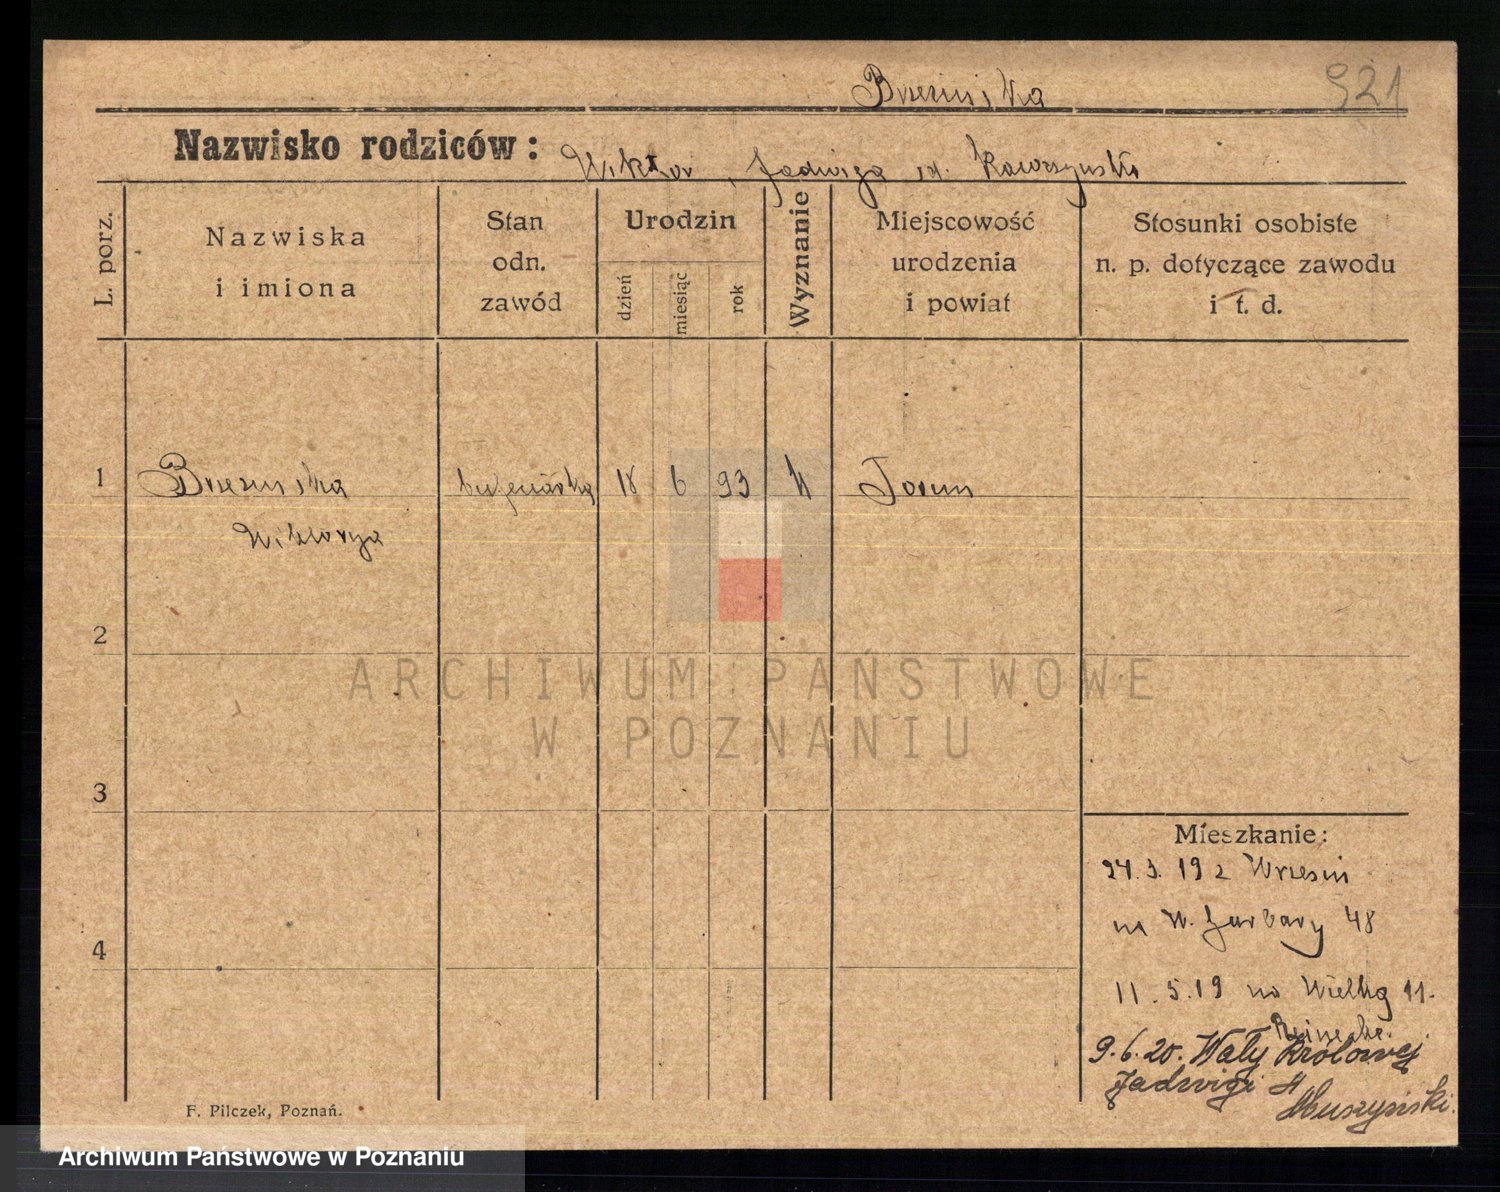 Brzezińska 921
Nazwisko rodziców: Wiktor, Jadwiga
L. porz.
Nazwiska
i imiona
Stan
odn.
zawód
Urodzin
dzień
miesiąc
rok
Wyznanie
Miejscowość
urodzenia
i powiat
Stosunki osobiste
n. p. dotyczące zawodu
i t. d.
1 Brzezińska bufeciarka 18 6 93 k Toruń
Wiktorya
2
3
4
Mieszkanie:
24.3.19 z Wrześni
na W. Garbary 48
11.5.19 na Wielką 11.
9.6.20. Wały Królowej
Jadwigi
Muszyński.
F. Pilczek, Poznań.
ARCHIWUM PAŃSTWOWE
W POZNANIU
Archiwum Państwowe w Poznaniu